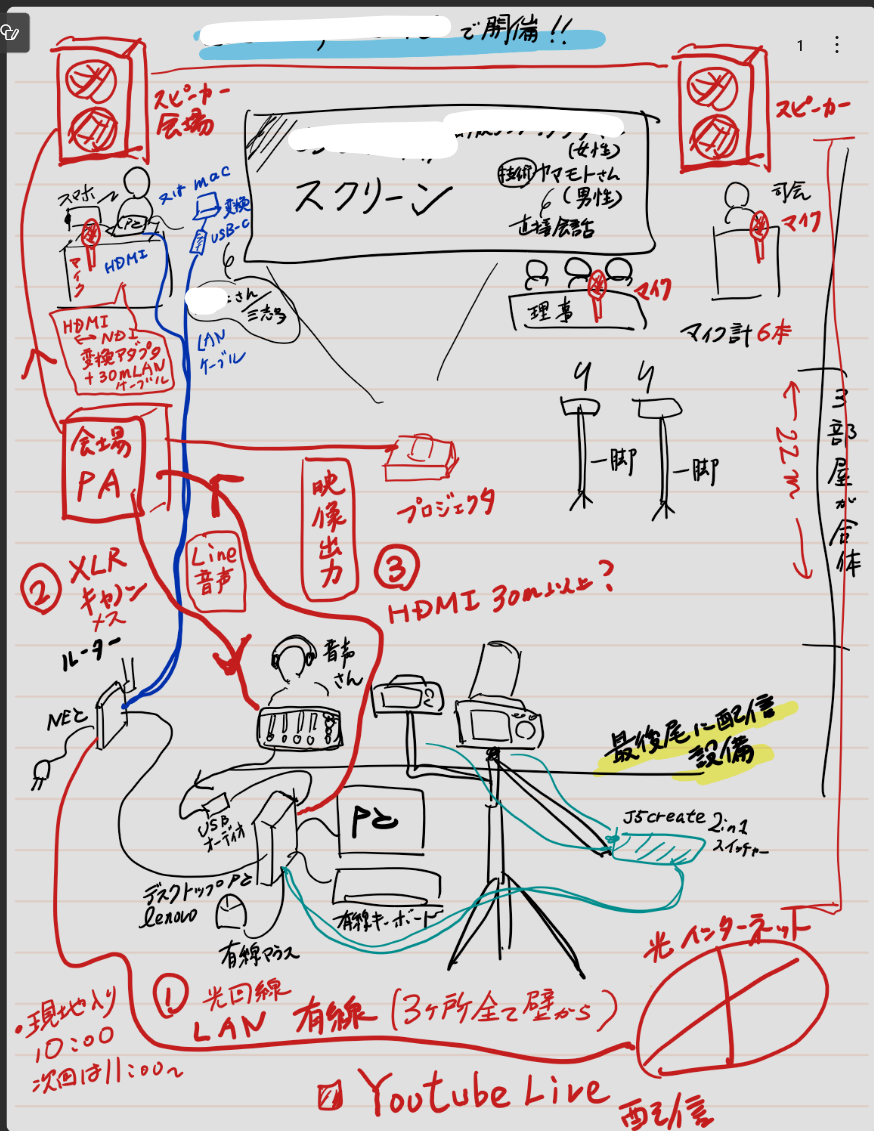 で開備!!
1
スピーカー
会場
スピーカー
スマホ
又はmac
変換
USB-C
PC
マイク
HDMI
スクリーン
(女性)
技術 ヤマモトさん
(男性)
直接会話
司会
マイク
さん
三志号
LAN
ケーブル
理事
マイク
マイク計6本
HDMI
↔NDI
変換アダプタ
+30mLAN
ケーブル
会場
PA
プロジェクタ
映像出力
一脚
一脚
←22m→
3部屋が合体
② XLR
キャノン
メス
Line
音声
③
HDMI 30m以上?
ルーター
NEC
音声
さん
最後尾に配信
設備
USB
オーディオ
PC
J5create 2in1
スイッチャー
デスクトップPC
lenovo
有線キーボード
有線マウス
光インターネット
① 光回線
LAN 有線 (3ヶ所全て壁から)
・現地入り
10:00
次回は11:00〜
Youtube Live
配信